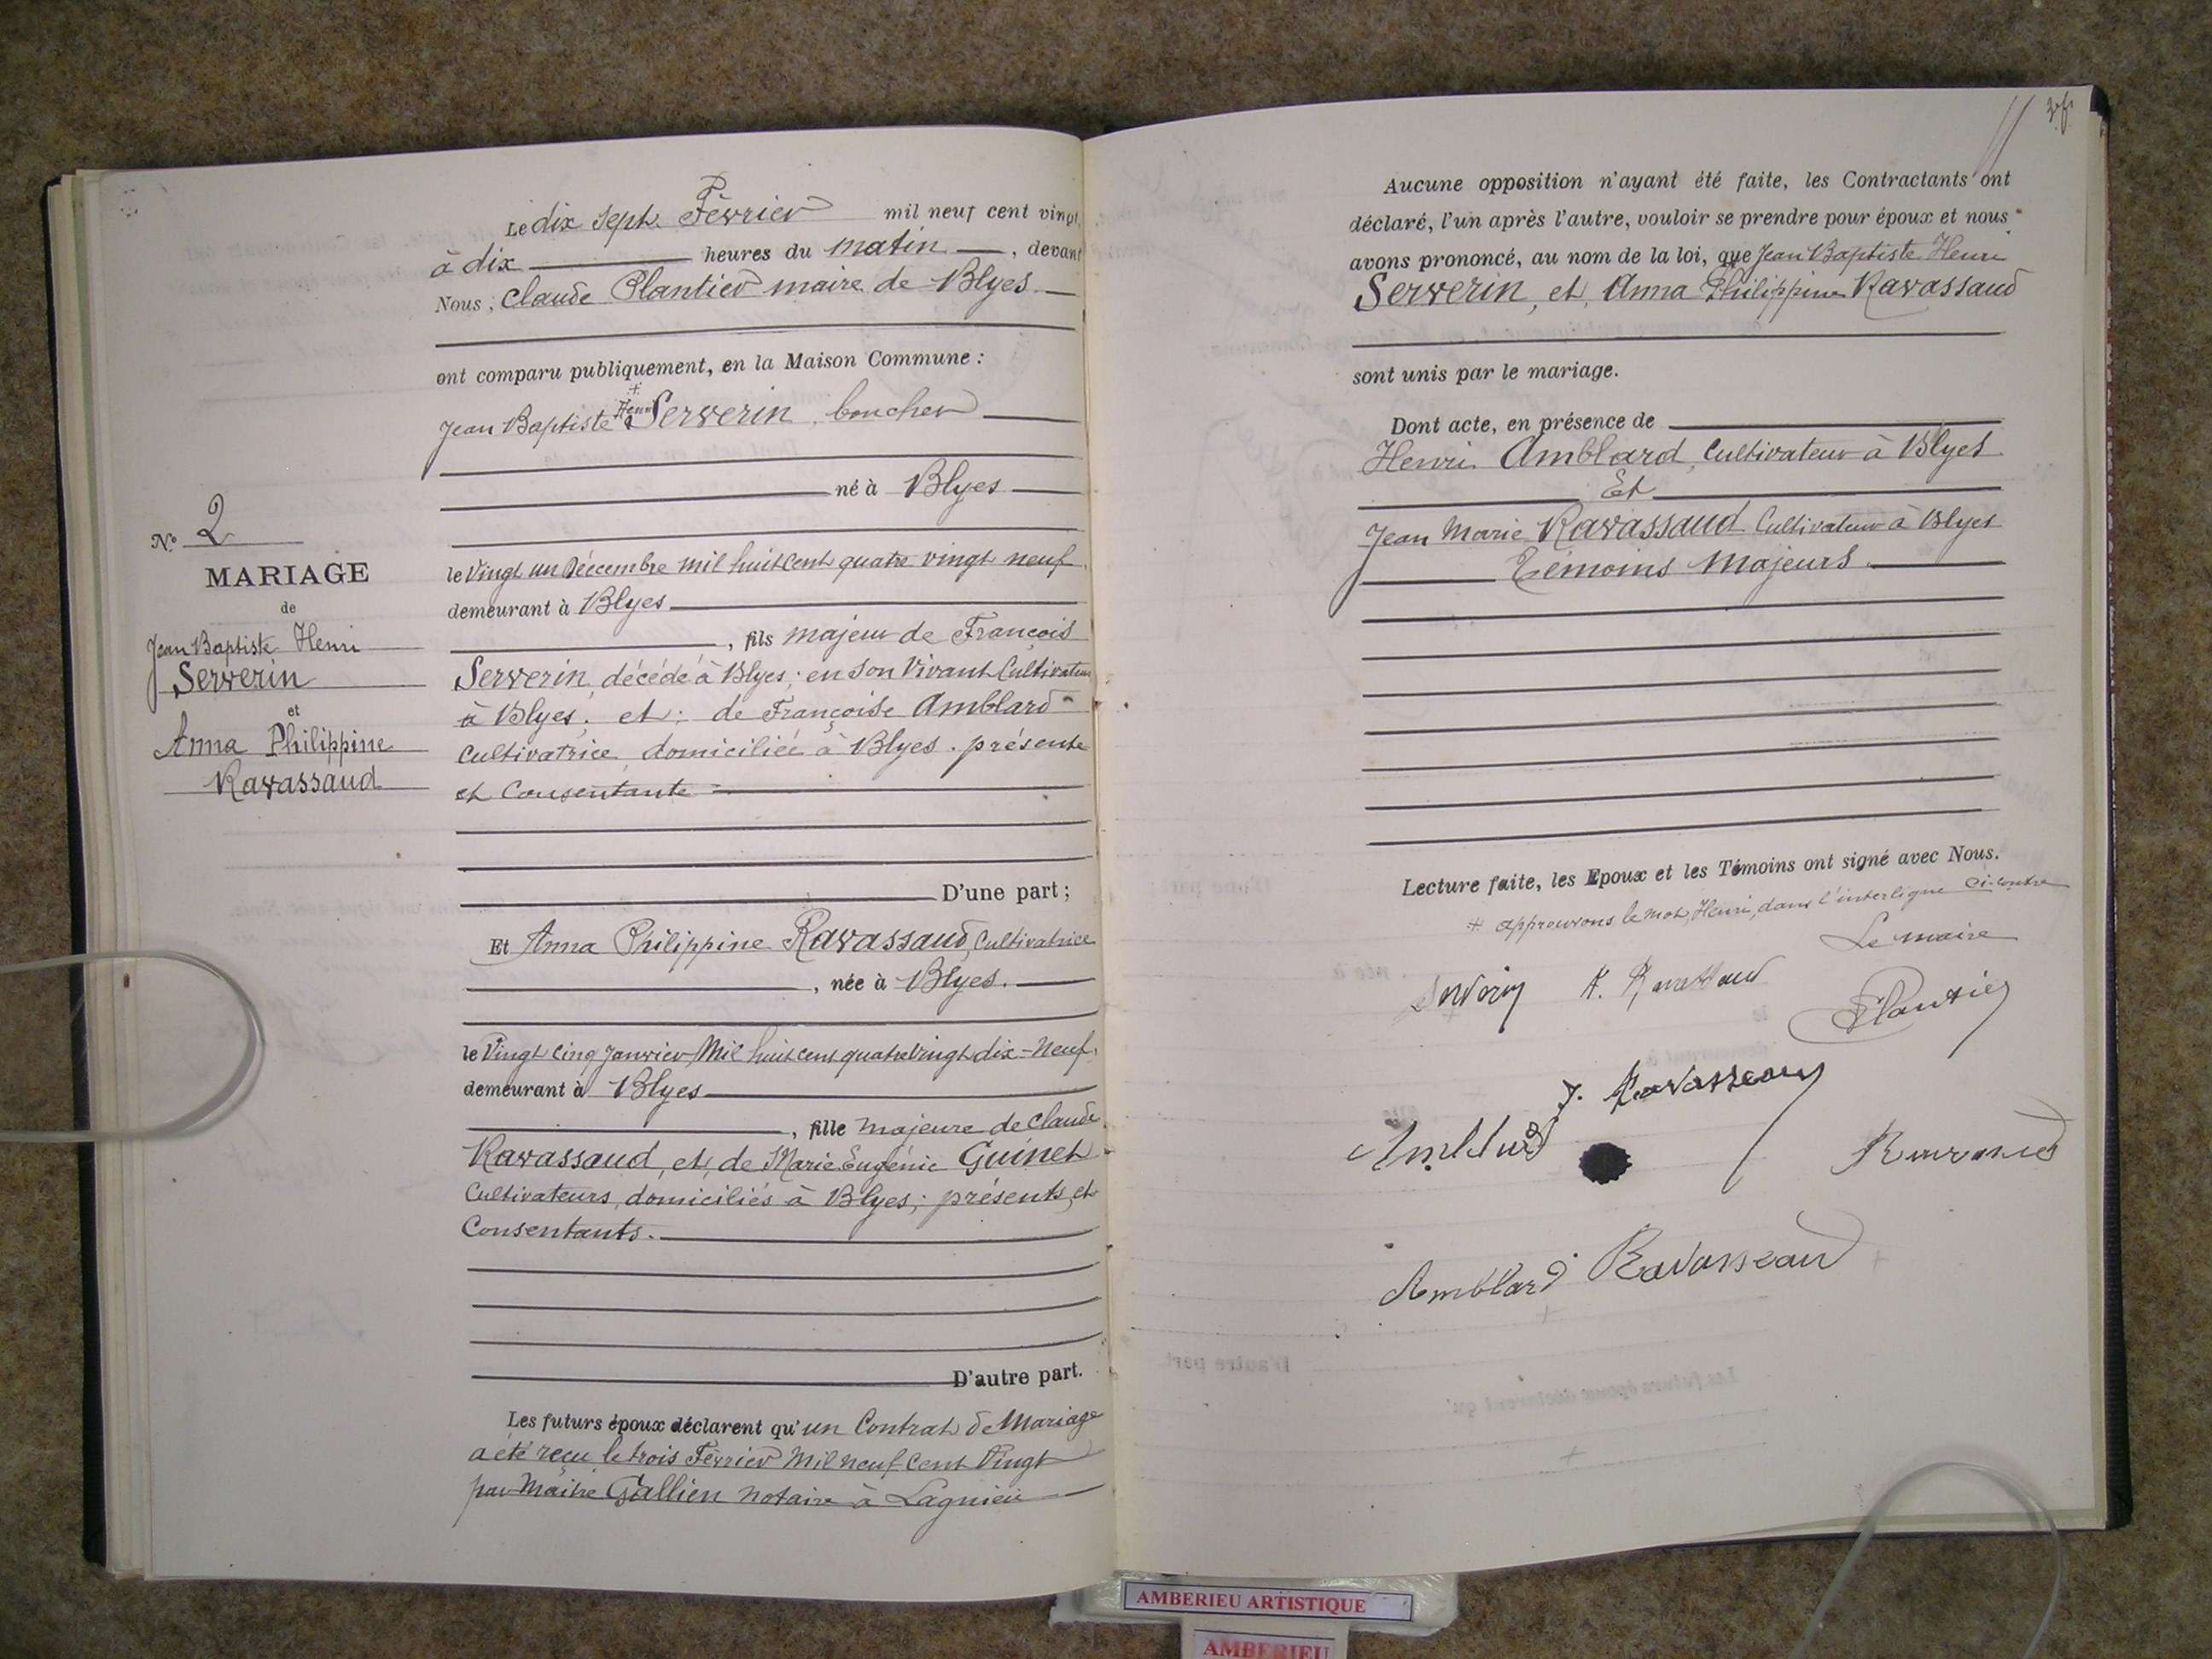 Le dix Sept Février mil neuf cent vingt,
à dix heures du matin, devant
Nous, Claude Plantier maire de Blyes
ont comparu publiquement, en la Maison Commune :
Jean Baptiste Henri Serverin, boucher
né à Blyes
le Vingt un Décembre mil huit Cent quatre vingt neuf
demeurant à Blyes
, fils majeur de François
Serverin, décédé à Blyes; en son Vivant Cultivateur
à Blyes, et; de Françoise Amblard
Cultivatrice, domiciliée à Blyes. présente
et Consentante
D'une part;
Et Anna Philippine Ravassaud, Cultivatrice
, née à Blyes.
le Vingt Cinq Janvier Mil huit cent quatre Vingt dix-Neuf,
demeurant à Blyes
, fille majeure de Claude
Ravassaud, et, de Marie Eugénie Guinet
Cultivateurs, domiciliés à Blyes; présents, et
Consentants.
D'autre part.
Les futurs époux déclarent qu'un Contrat de Mariage
a été reçu le trois Février Mil neuf Cent Vingt
par Maître Gallien notaire à Lagnieu
N° 2
MARIAGE
de
Jean Baptiste Henri
Serverin
et
Anna Philippine
Ravassaud
Aucune opposition n'ayant été faite, les Contractants ont
déclaré, l'un après l'autre, vouloir se prendre pour époux et nous
avons prononcé, au nom de la loi, que Jean Baptiste Henri
Serverin, et, Anna Philippine Ravassaud
sont unis par le mariage.
Dont acte, en présence de
Henri Amblard, Cultivateur à Blyes
Et
Jean Marie Ravassaud Cultivateur à Blyes
Témoins Majeurs.
Lecture faite, les Epoux et les Témoins ont signé avec Nous.
# approuvons le mot, Henri, dans l'interligne ci-contre
Le maire
A. Ravassaud
Plantier
J. Ravasseau
Amblard Ravasseaud
AMBERIEU ARTISTIQUE
AMBERIEU